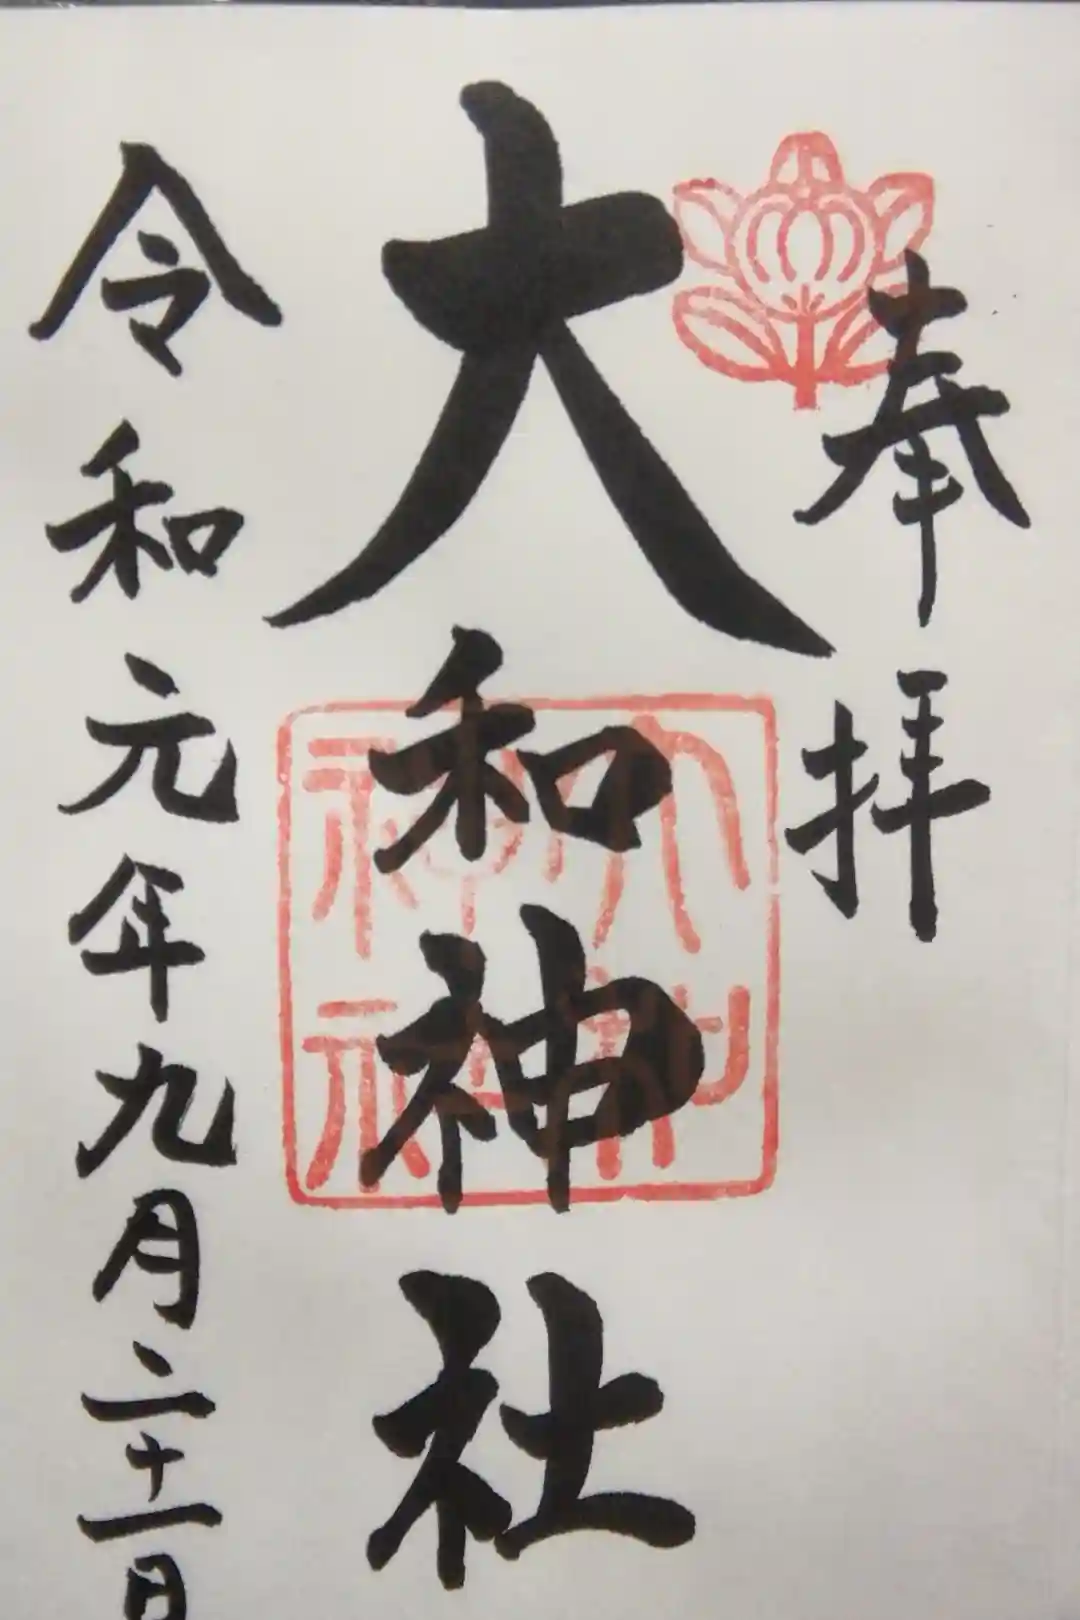 奉拝
大和神社
大和神社
令和元年九月二十一日